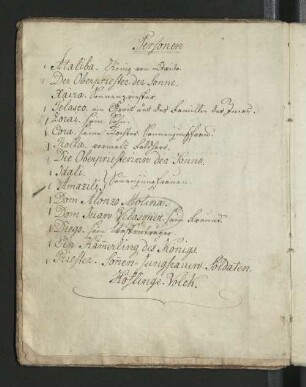 Personen
1 Ataliba. König von Quito.
1 Der Oberpriester der Sonne.
1 Xaira. Sonnenpriester
1 Telasco. ein Greis aus der Familie der Yncas.
1 Zorai. sein Sohn.
1 Cora. seine Tochter Sonnenjungfrau.
1 Rolla. Feldherr.
1 Die Oberpriesterinn der Sonne.
1 Idali.
1 Amazili. } Sonnenjungfrauen.
1 Dom Alonzo Molina.
1 Dom Juan Velasquez. sein Freund.
1 Diego. sein Waffenträger
1 Ein Kämmerling des Königs.
1 Priester. Sonen-Jungfrauen, Soldaten.
Höflinge. Volck.